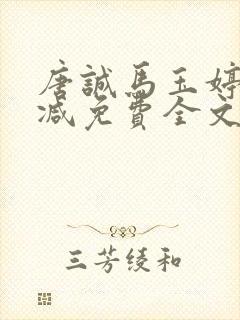 唐誠馬玉婷
減免費全文
三芳绫和